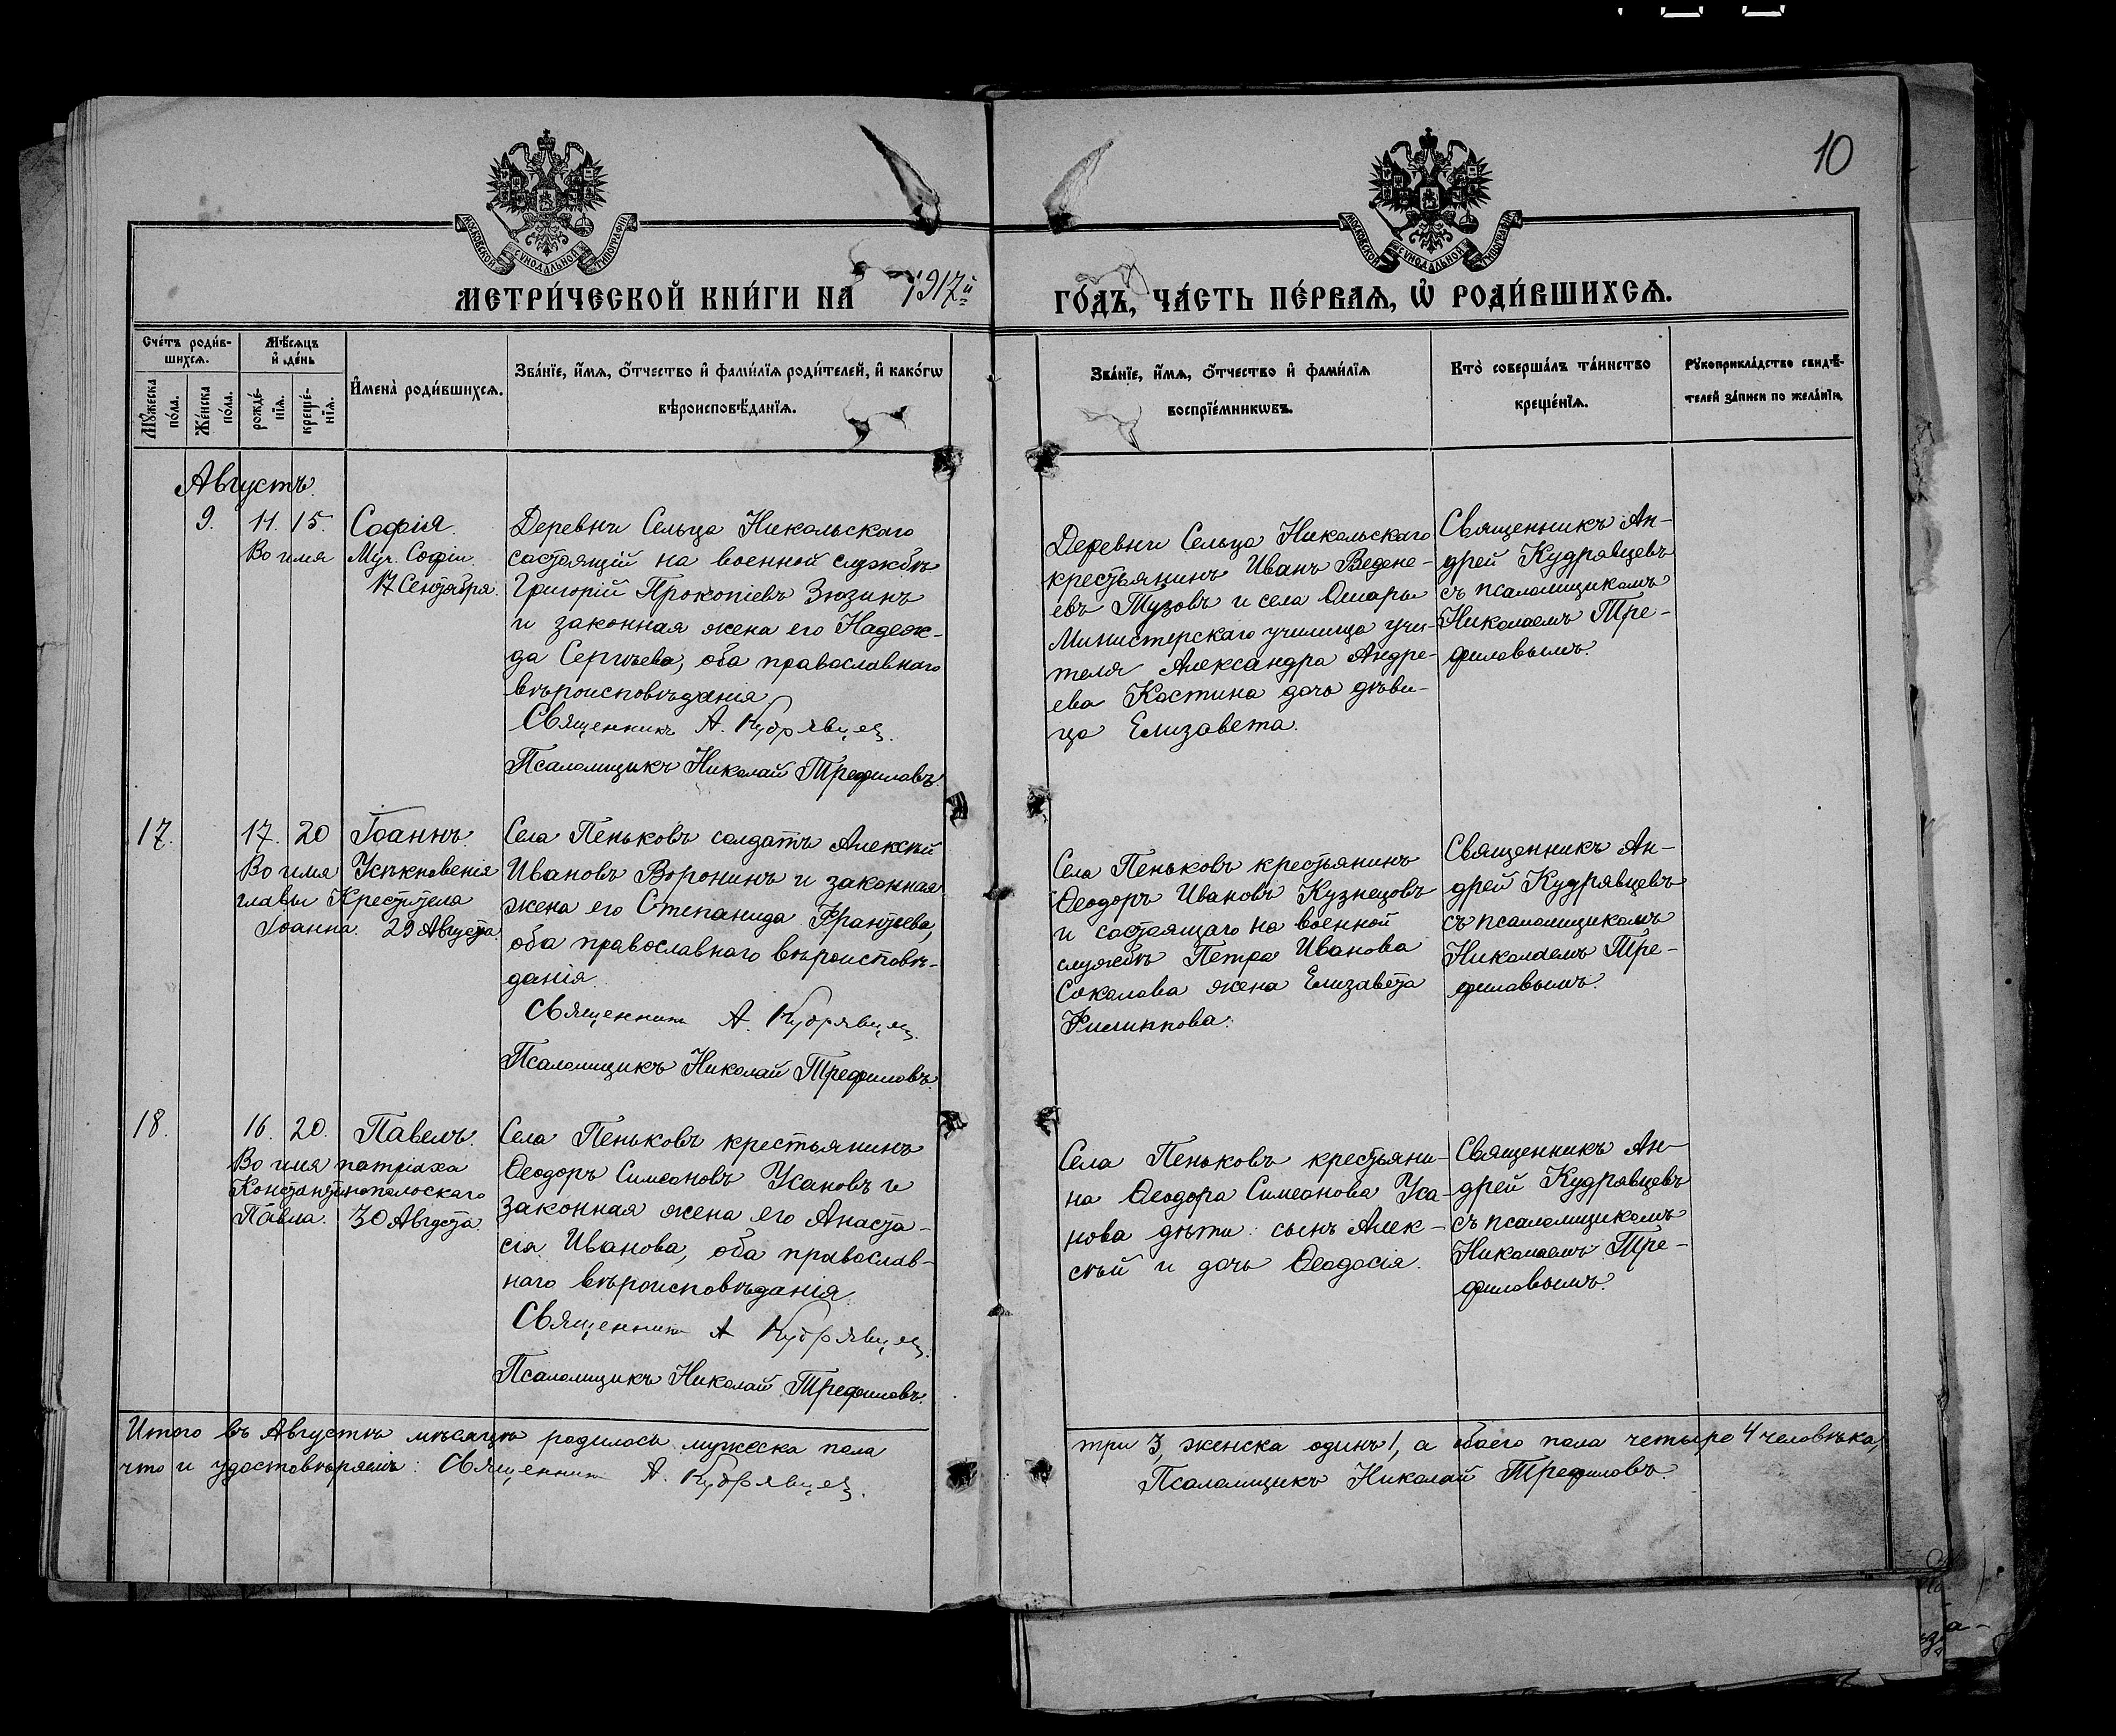 10
МОСКОВСКОЙ СѴНОДАЛЬНОЙ ТИПОГРАФІИ
МОСКОВСКОЙ СѴНОДАЛЬНОЙ ТИПОГРАФІИ
МЕТРИ́ЧЕСКОЙ КНИ́ГИ НА 1917й
ГО́ДЪ, ЧА́СТЬ ПЕ́РВАѦ, Ѡ҆ РОДИ́ВШИХСѦ.
Сче́тъ роди́в-
шихсѧ.
Мꙋ́жеска
по́ла.
Же́нска
по́ла.
Мѣ́сѧцъ
и҆ де́нь
рожде́-
нїѧ.
креще́-
нїѧ.
И҆мена̀ роди́вшихсѧ.
Зва́нїе, и҆́мѧ, ѻ҆́тчество и҆ фами́лїѧ роди́телей, и҆ како́гѡ
вѣроисповѣ́данїѧ.
Зва́нїе, и҆́мѧ, ѻ҆́тчество и҆ фами́лїѧ
воспрїе́мникѡвъ.
Кто̀ соверша́лъ та́инство
креще́нїѧ.
Рꙋкоприкла́дство свидѣ́-
телей за́писи по жела́нїю.
Августъ.
9. 11. 15. Софія.
Во имя Муч. Софіи.
17 Сентября.
Деревни Сельца Никольскаго
состоящій на военной службѣ
Григорій Прокопіевъ Зюзинъ
и законная жена его Надеж-
да Сергѣева, оба православнаго
вѣроисповѣданія.
Священникъ А. Кудрявцев.
Псаломщикъ Николай Трефиловъ.
Деревни Сельца Никольскаго
крестьянинъ Иванъ Ведене-
евъ Тузовъ и села Ошары
Министерскаго училища учи-
теля Александра Андре-
ева Костина дочь дѣви-
ца Елизавета.
Священникъ Ан-
дрей Кудрявцевъ
съ псаломщикомъ
Николаемъ Тре-
филовымъ.
17. 17. 20 Іоаннъ.
Во имя Усѣкновенія
главы Крестителя
Іоанна. 29 Августа.
Села Пеньковъ солдатъ Алексѣй
Ивановъ Воронинъ и законная
жена его Степанида Франтьева,
оба православнаго вѣроисповѣ-
данія.
Священник А. Кудрявцев.
Псаломщикъ Николай Трефиловъ.
Села Пеньковъ крестьянинъ
Ѳеодоръ Ивановъ Кузнецовъ
и состоящаго на военной
службѣ Петра Иванова
Соколова жена Елизавета
Филиппова.
Священникъ Ан-
дрей Кудрявцевъ
съ псаломщикомъ
Николаемъ Тре-
филовымъ.
18. 16. 20. Павелъ.
Во имя патріаха
Константинополоскаго
Павла. 30 Августа.
Села Пеньковъ крестьянинъ
Ѳеодоръ Симеоновъ Ухановъ и
законная жена его Анаста-
сія Иванова, оба православ-
наго вѣроисповѣданія.
Священник А Кудрявцев.
Псаломщикъ Николай Трефиловъ.
Села Пеньковъ крестьяни-
на Ѳеодора Симеонова Уха-
нова дѣти: сынъ Алек-
сѣй и дочь Ѳеодосія.
Священникъ Ан-
дрей Кудрявцевъ
съ псаломщикомъ
Николаемъ Тре-
филовымъ.
Итого въ Августѣ мѣсяцѣ родилось мужеска пола
три 3, женска одинъ 1, а обоего пола четыре 4 человѣка,
что и удостовѣряемъ: Священник А. Кудрявцев.
Псаломщикъ Николай Трефиловъ.